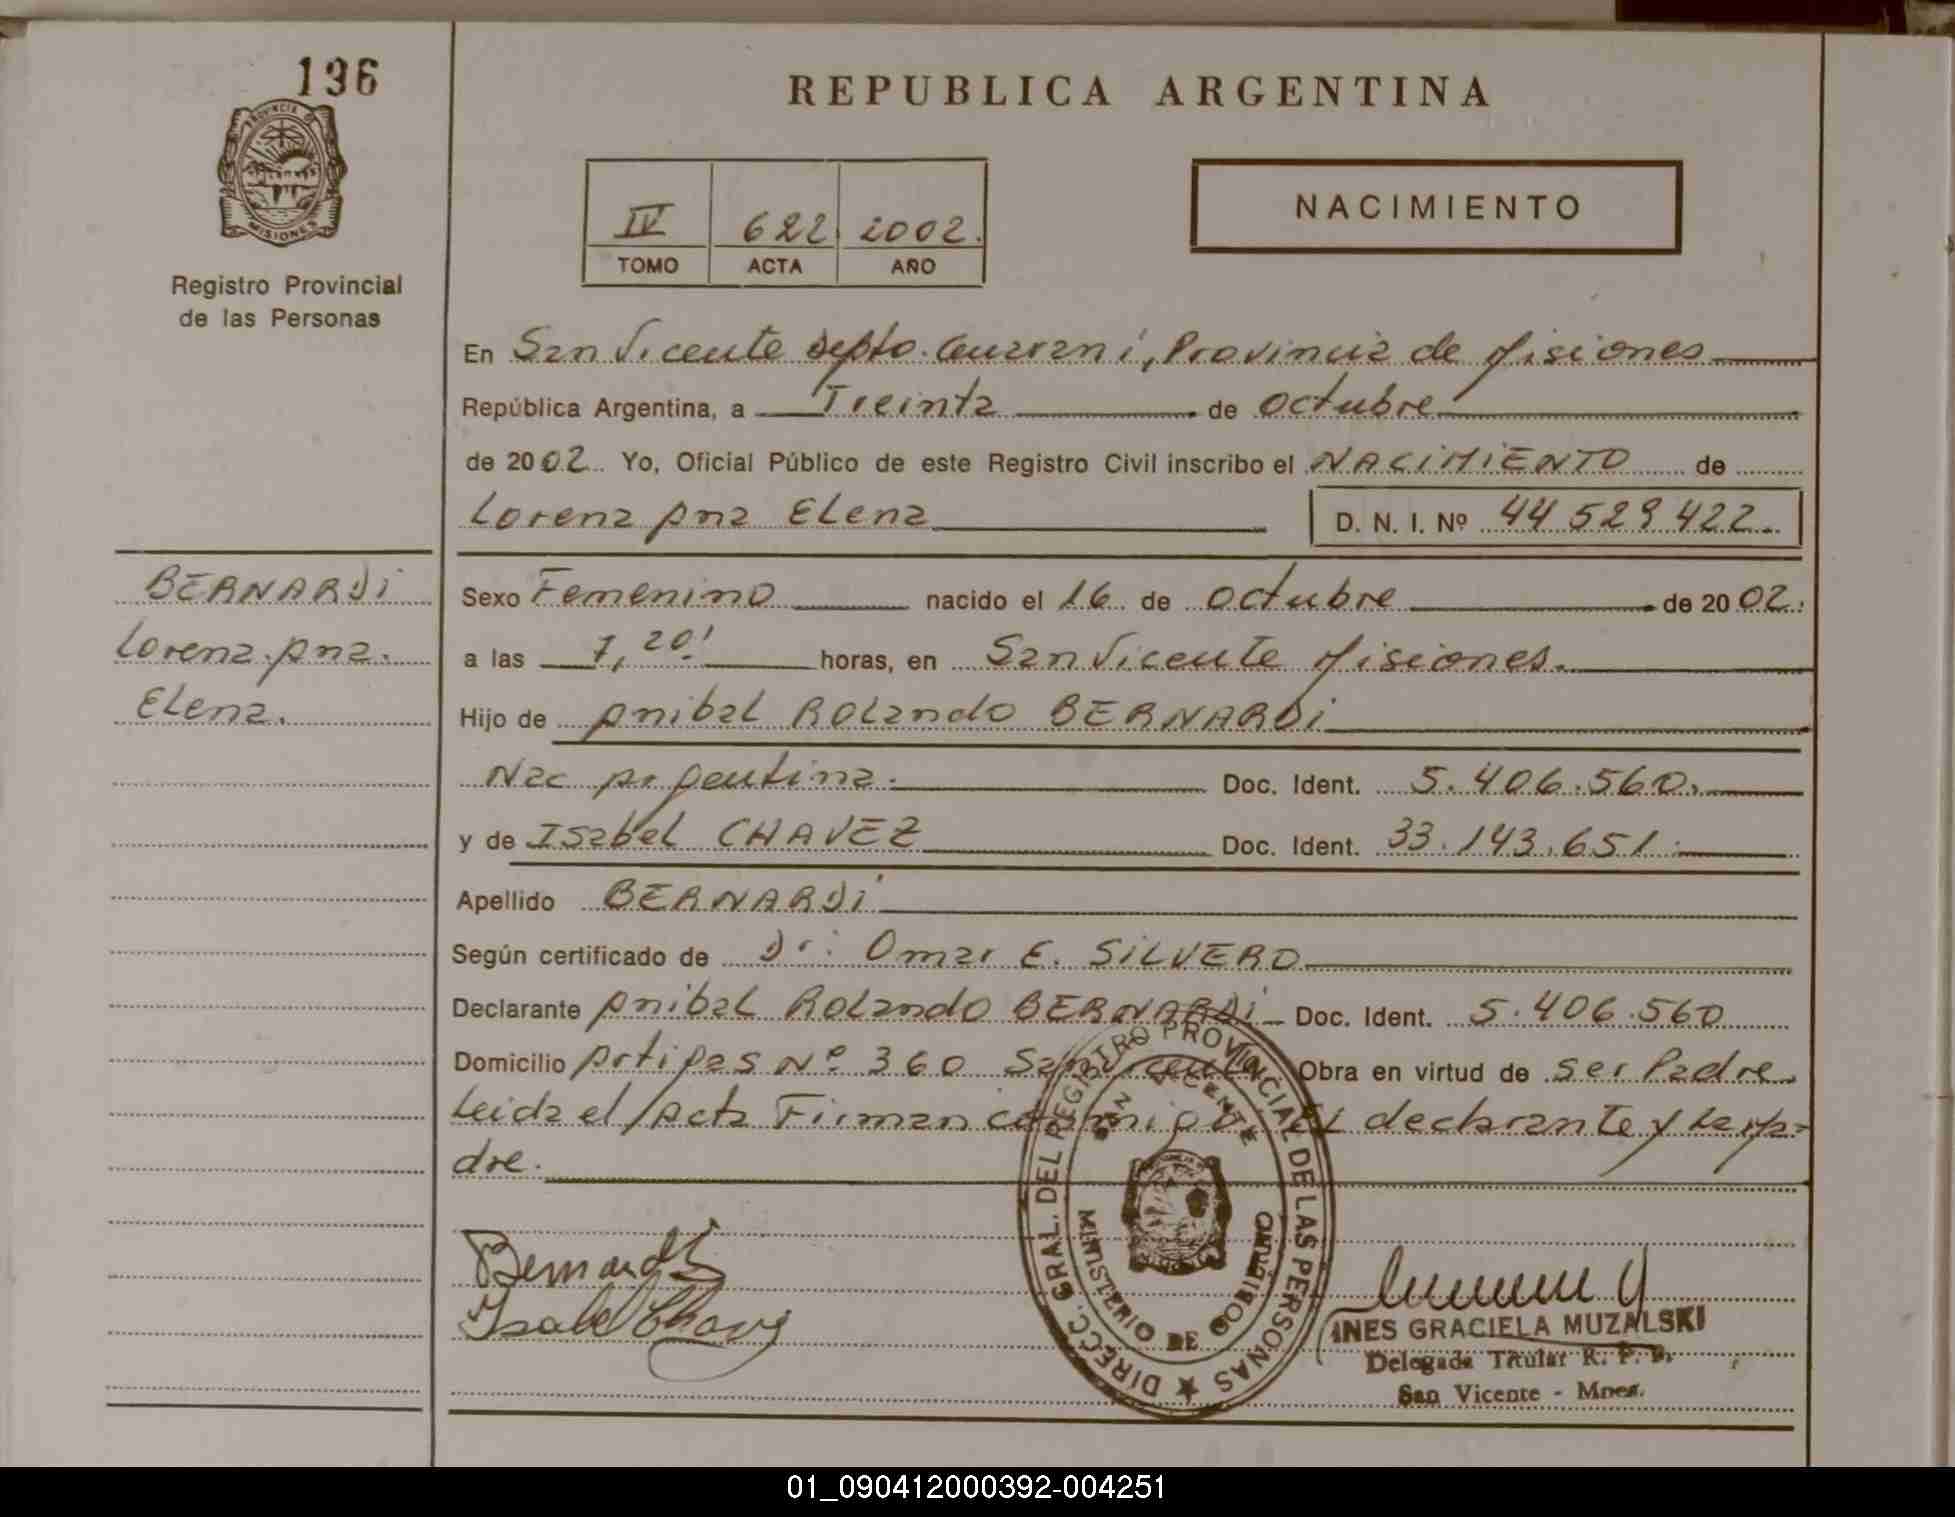 196
PROVINCIA DE
MISIONES
Registro Provincial
de las Personas
REPUBLICA ARGENTINA
IV 622 2002.
TOMO ACTA AÑO
NACIMIENTO
En San Vicente Depto. Guaraní, Provincia de Misiones
República Argentina, a Treinta de octubre
de 2002. Yo, Oficial Público de este Registro Civil inscribo el NACIMIENTO de
Lorena Ana Elena D. N. I. Nº 44 529 422.
BERNARDi
Lorena Ana
Elena.
Sexo Femenino nacido el 16 de octubre de 2002.
a las 7,20' horas, en San Vicente Misiones.
Hijo de Anibal Rolando BERNARDi
Nac Argentina. Doc. Ident. 5.406.560.
y de Isabel CHAVEZ Doc. Ident. 33.143.651.
Apellido BERNARDi
Según certificado de Dr. Omar E. SiLVERO
Declarante Anibal Rolando BERNARDi Doc. Ident. 5.406.560
Domicilio Artigas Nº 360 San Vicente Obra en virtud de ser Padre
Leida el Acta Firman conmigo el declarante y la ma=
dre.
Bernardi
Isabel Chavez
DIRECC. GRAL. DEL REGISTRO PROVINCIAL DE LAS PERSONAS
SAN VICENTE
MINISTERIO DE GOBIERNO
INES GRACIELA MUZALSKI
Delegada Titular R. P. P.
San Vicente - Mnes.
01_090412000392-004251